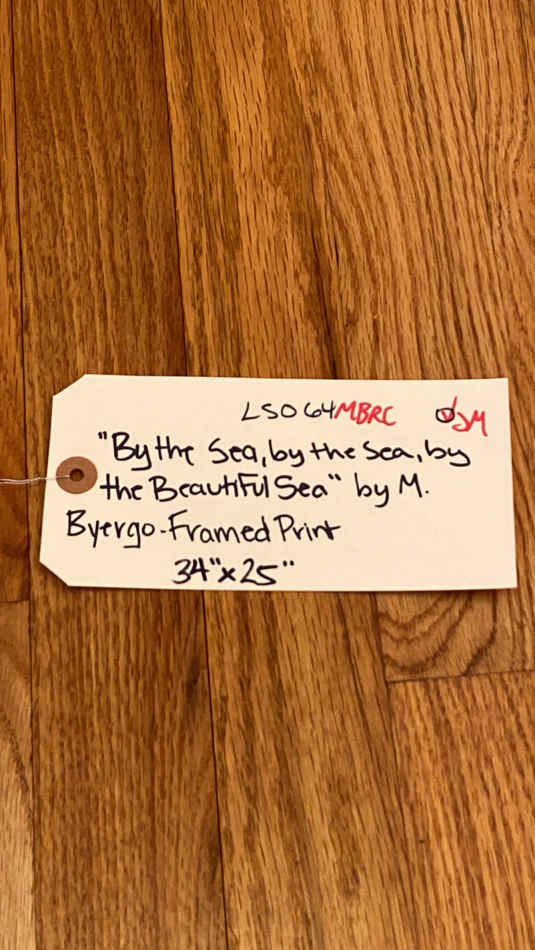 LS064MBRC JM
"By the Sea, by the Sea, by
the Beautiful Sea" by M.
Byergo-Framed Print
34"x25"